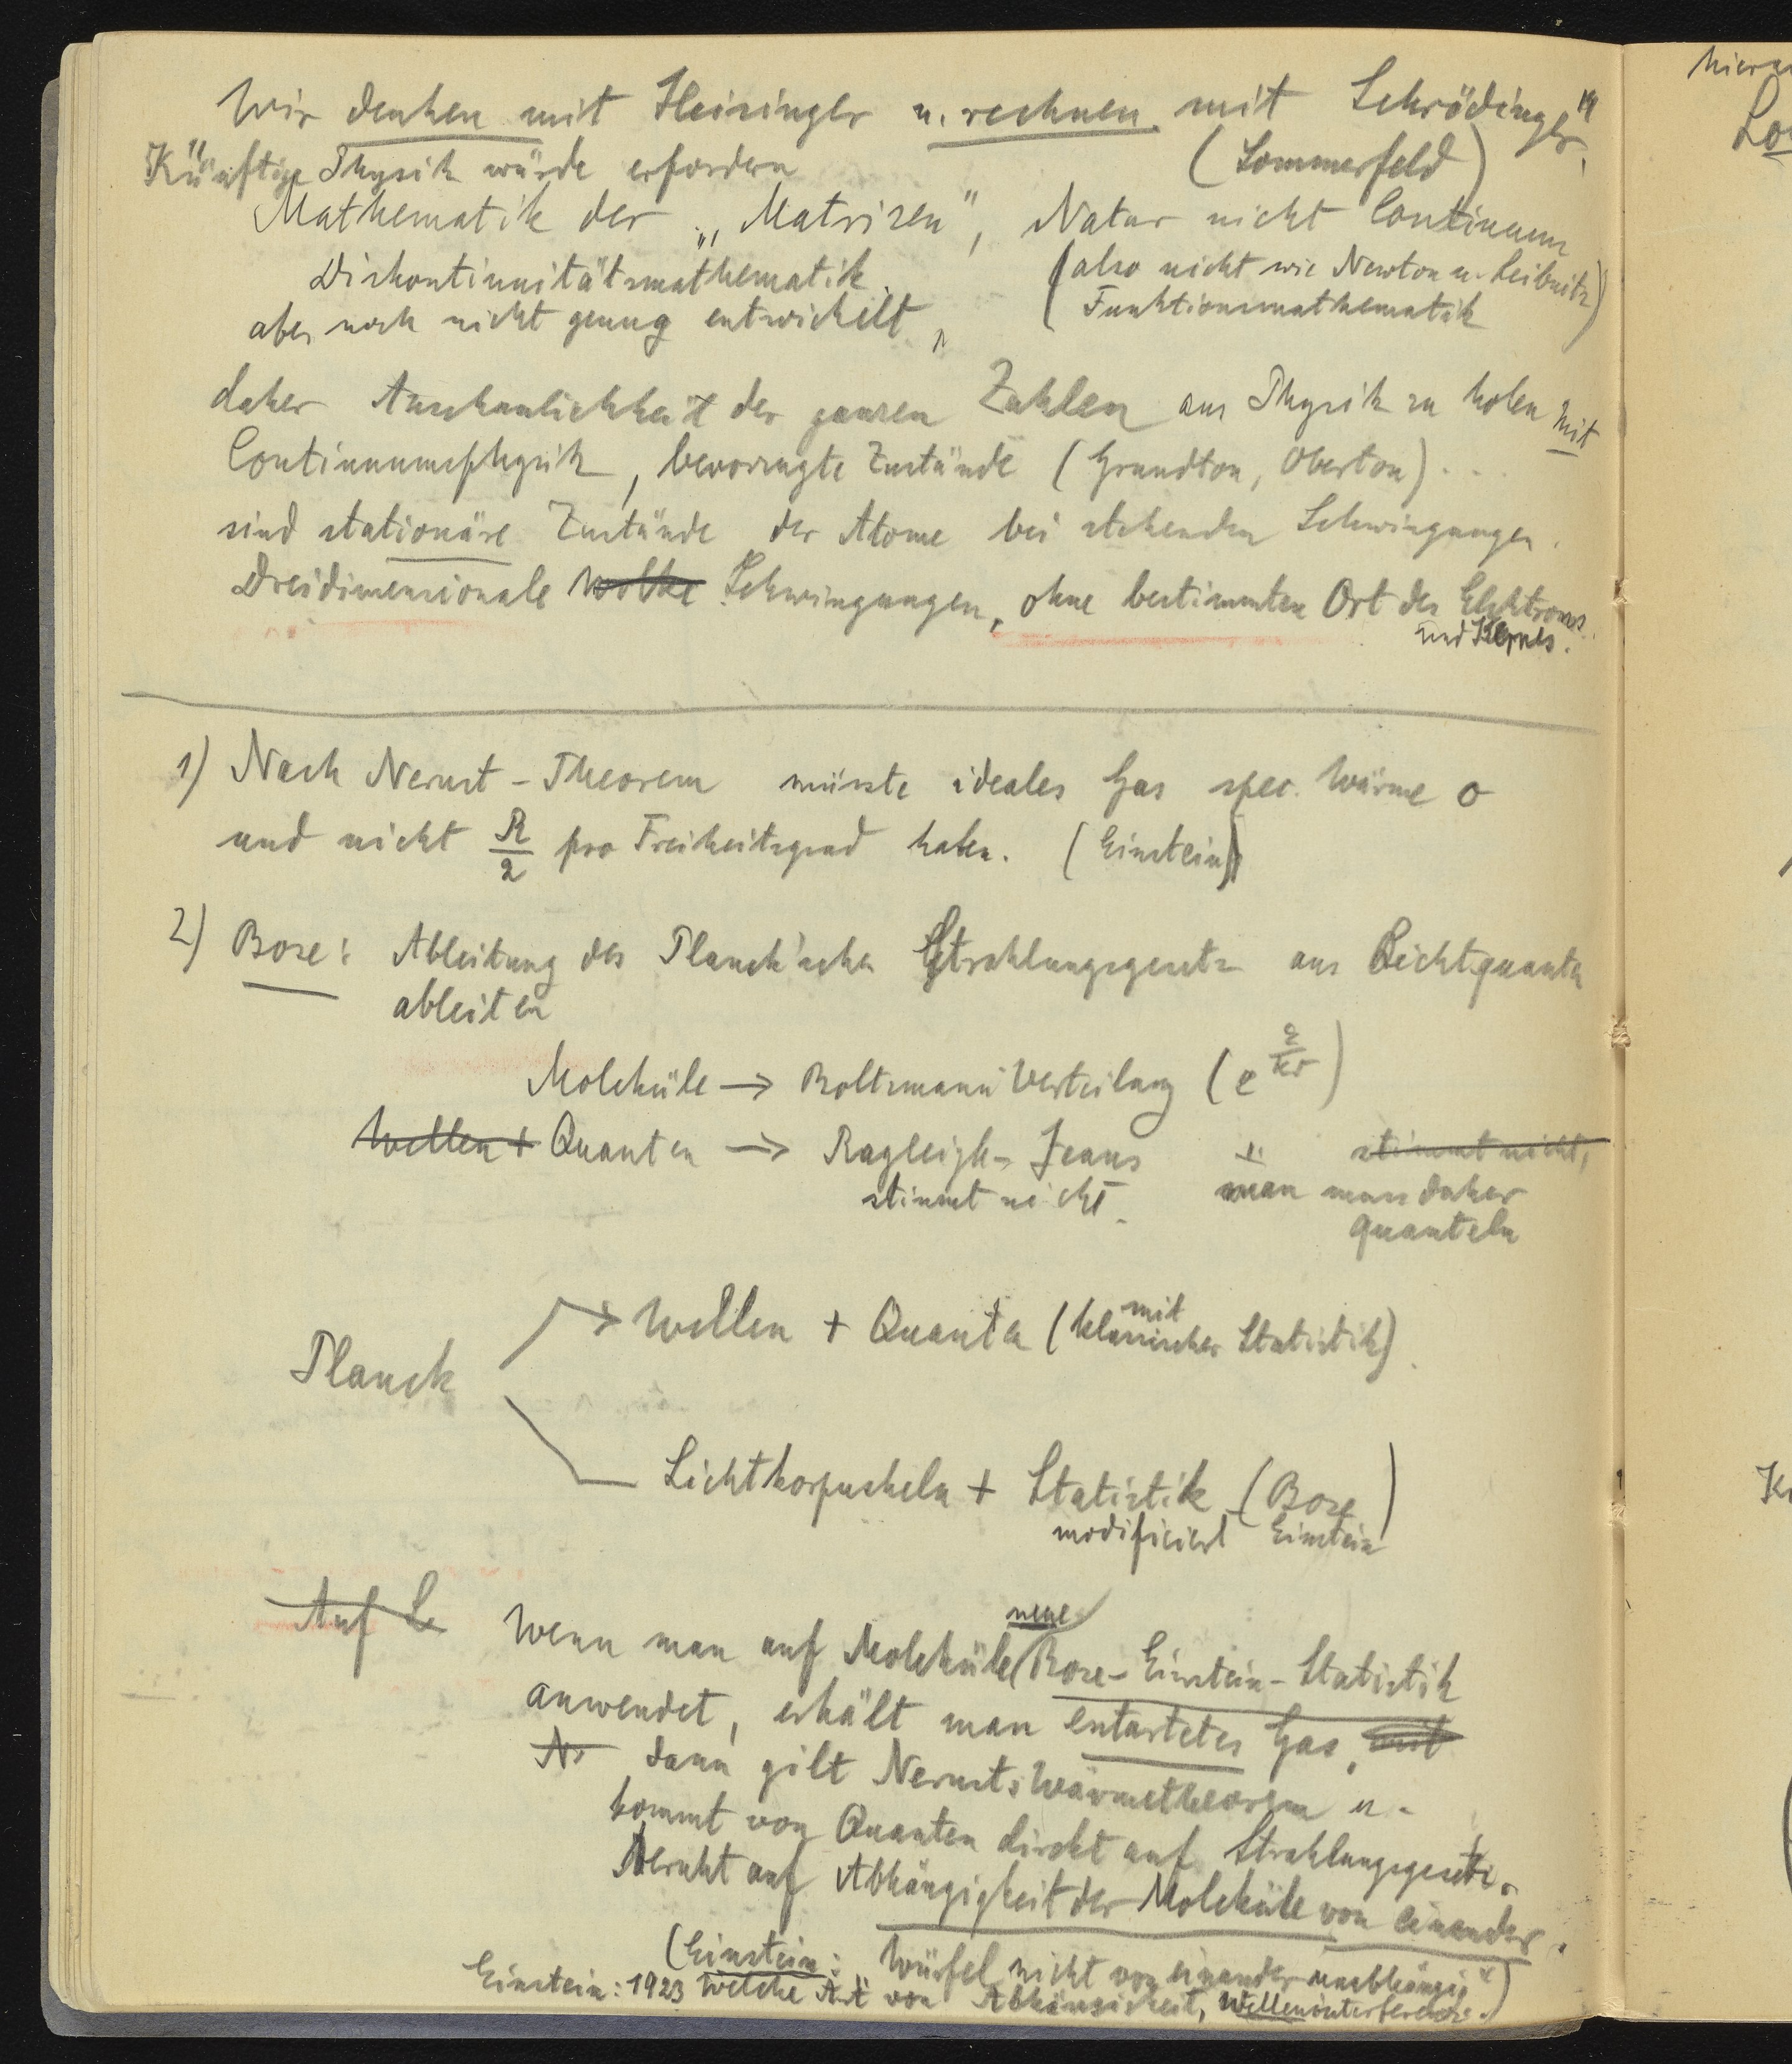 Wir denken mit Heisinger u. rechnen mit Schrödinger"
(Sommerfeld)
Künftige Physik würde erfordern
Mathematik der „Matrizen", Natur nicht Continuum
Diskontinuitätsmathematik. (also nicht wie Newton u. Leibnitz
aber noch nicht genug entwickelt, Funktionsmathematik)
daher Anschaulichkeit der ganzen Zahlen aus Physik zu holen mit
Continuumsphysik, bevorzugte Zustände (Grundton, Oberton) ...
sind stationäre Zustände der Atome bei stehenden Schwingungen.
Dreidimensionale Wolke Schwingungen, ohne bestimmten Ort des Elektrons.
und Kernes.
1) Nach Nernst-Theorem müsste ideales Gas spec. Wärme 0
und nicht R/2 pro Freiheitsgrad haben. (Einstein)
2) Bose: Ableitung des Planck'schen Strahlungsgesetz aus Lichtquanten
ableiten
Moleküle → Boltzmann Verteilung (e^ε/kT)
Wellen + Quanten → Rayleigh-Jeans " stimmt nicht,
stimmt nicht. man muss daher
quanteln
→ Wellen + Quanten (mit klassischer Statistik).
Planck
Lichtkorpuskeln + Statistik (Bose
modificiert Einstein)
Auf L
Wenn man auf Moleküle (neue Bose-Einstein-Statistik
anwendet, erhält man entartetes Gas, mit
Ns dann gilt Nernsts Wärmetheorem u.
kommt von Quanten direkt auf Strahlungsgesetz.
Beruht auf Abhängigkeit der Moleküle von einander.
(Einstein: „Würfel nicht von einander unabhängig")
Einstein: 1923 Welche Art von Abhängigkeit, Welleninterferenz.)
hiera
Lo
K